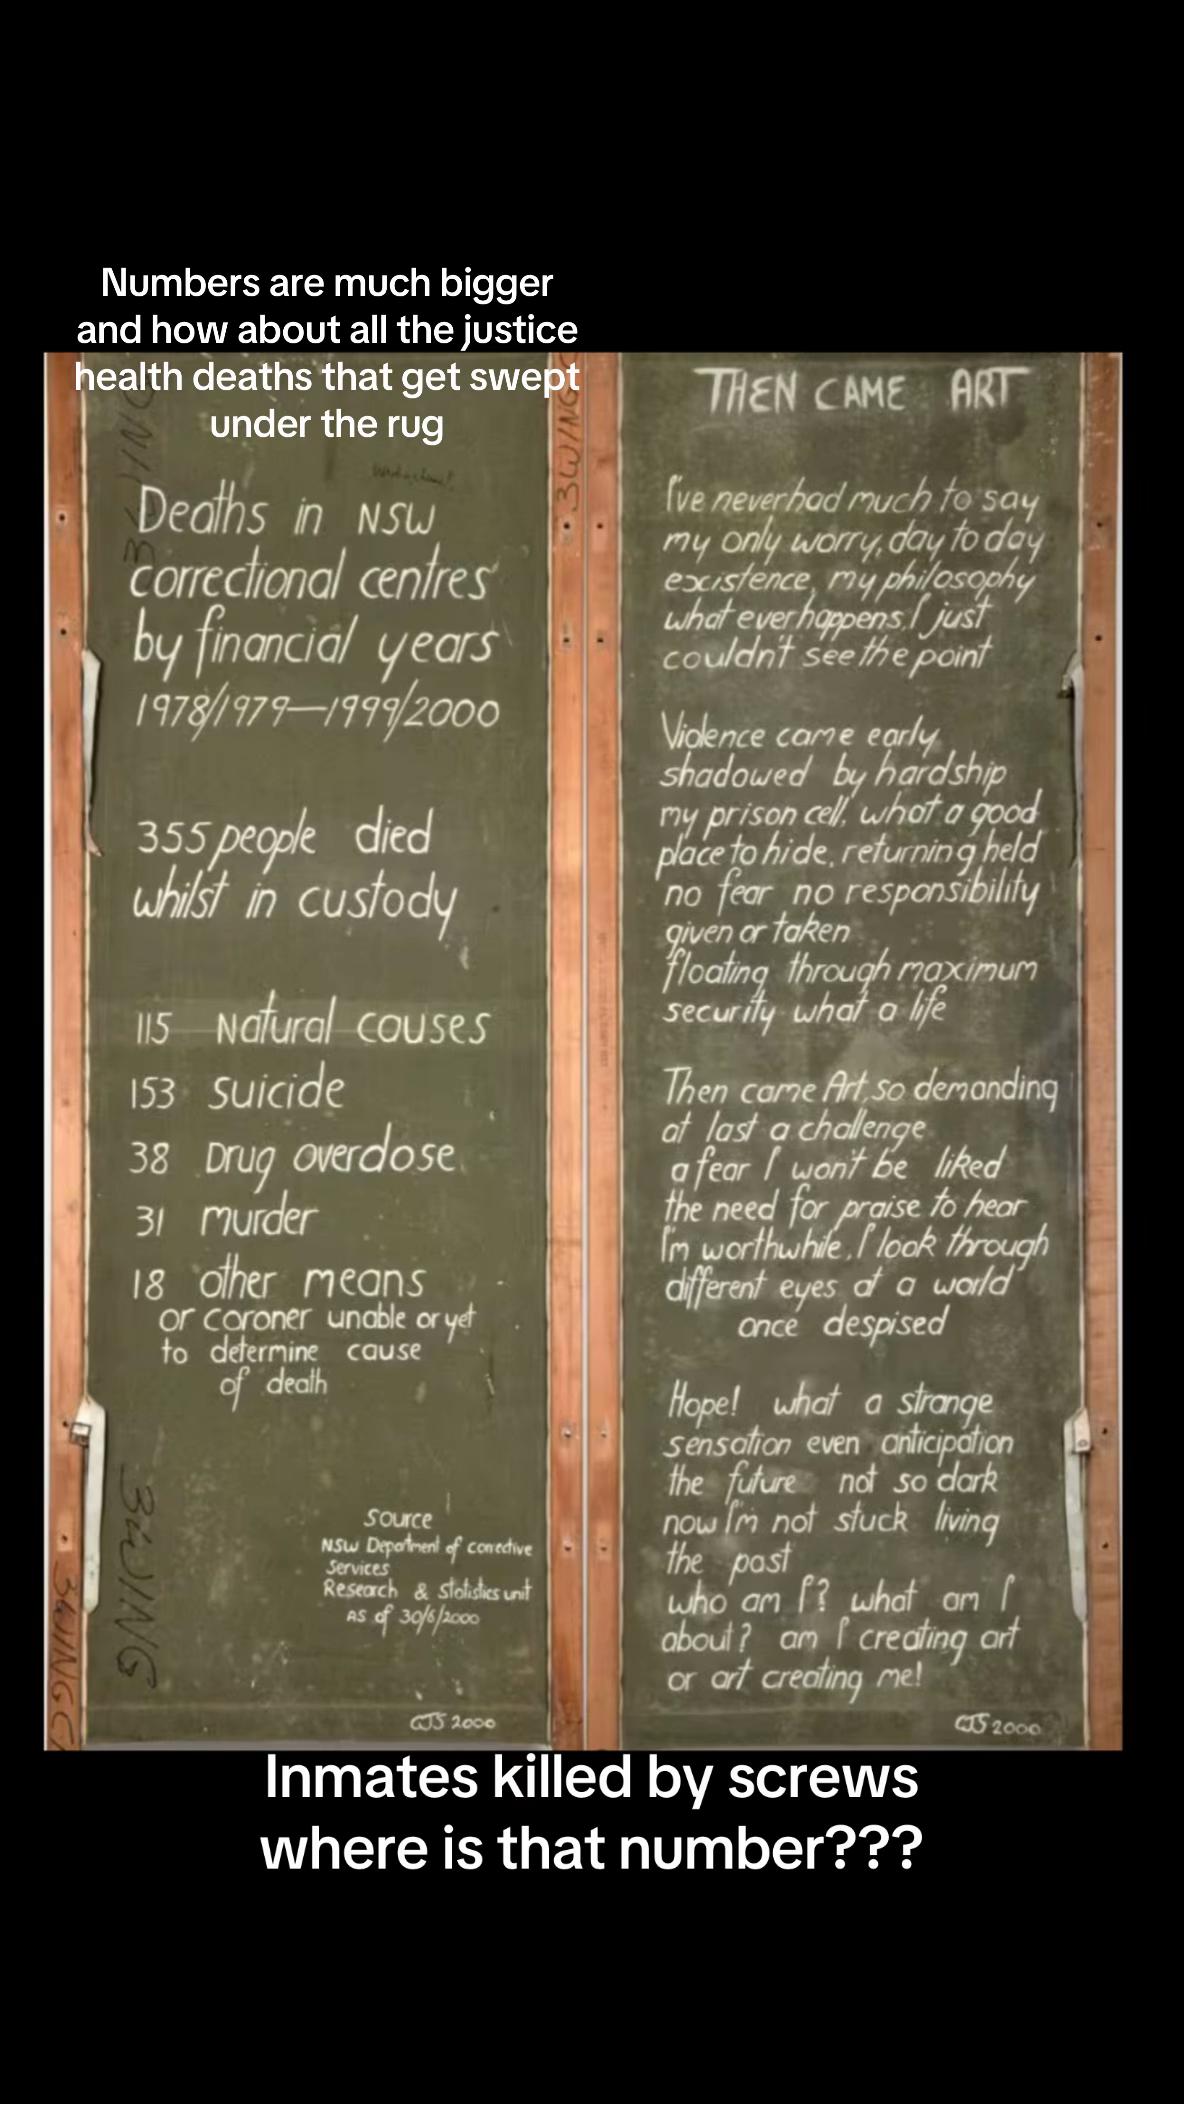 Numbers are much bigger
and how about all the justice
health deaths that get swept
under the rug
3WING
3WING
Deaths in NSW
correctional centres
by financial years
1978/1979—1999/2000
355 people died
whilst in custody
115 Natural causes
153 Suicide
38 Drug overdose
31 murder
18 other means
or coroner unable or yet
to determine cause
of death
Source
NSW Department of corrective
Services
Research & Statistics unit
AS of 30/6/2000
3WING
3WING
GJS 2000
THEN CAME ART
I've never had much to say
my only worry, day to day
excistence, my philosophy
what ever happens, I just
couldn't see the point
Violence came early
shadowed by hardship
my prison cell, what a good
place to hide, returning held
no fear no responsibility
given or taken
floating through maximum
security what a life
Then came Art, so demanding
at last a challenge
a fear I won't be liked
the need for praise to hear
I'm worthwhile, I look through
different eyes at a world
once despised
Hope! what a strange
sensation even anticipation
the future not so dark
now I'm not stuck living
the past
who am I? what am I
about? am I creating art
or art creating me!
GJS 2000
Inmates killed by screws
where is that number???